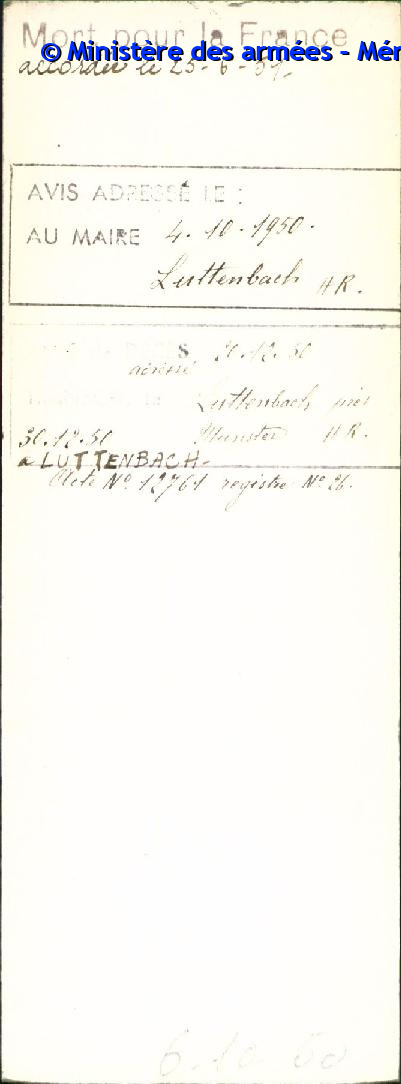 Mort pour la France
© Ministère des armées - Mém
accordée le 25-6-51-
AVIS ADRESSÉ LE :
AU MAIRE 4.10.1950.
Luttenbach HR.
DÉCÈS 30.12.50
adressé
Luttenbach près
30.12.50 Munster HR.
à LUTTENBACH-
Acte N° 12761 registre N° 26.
6.10.50